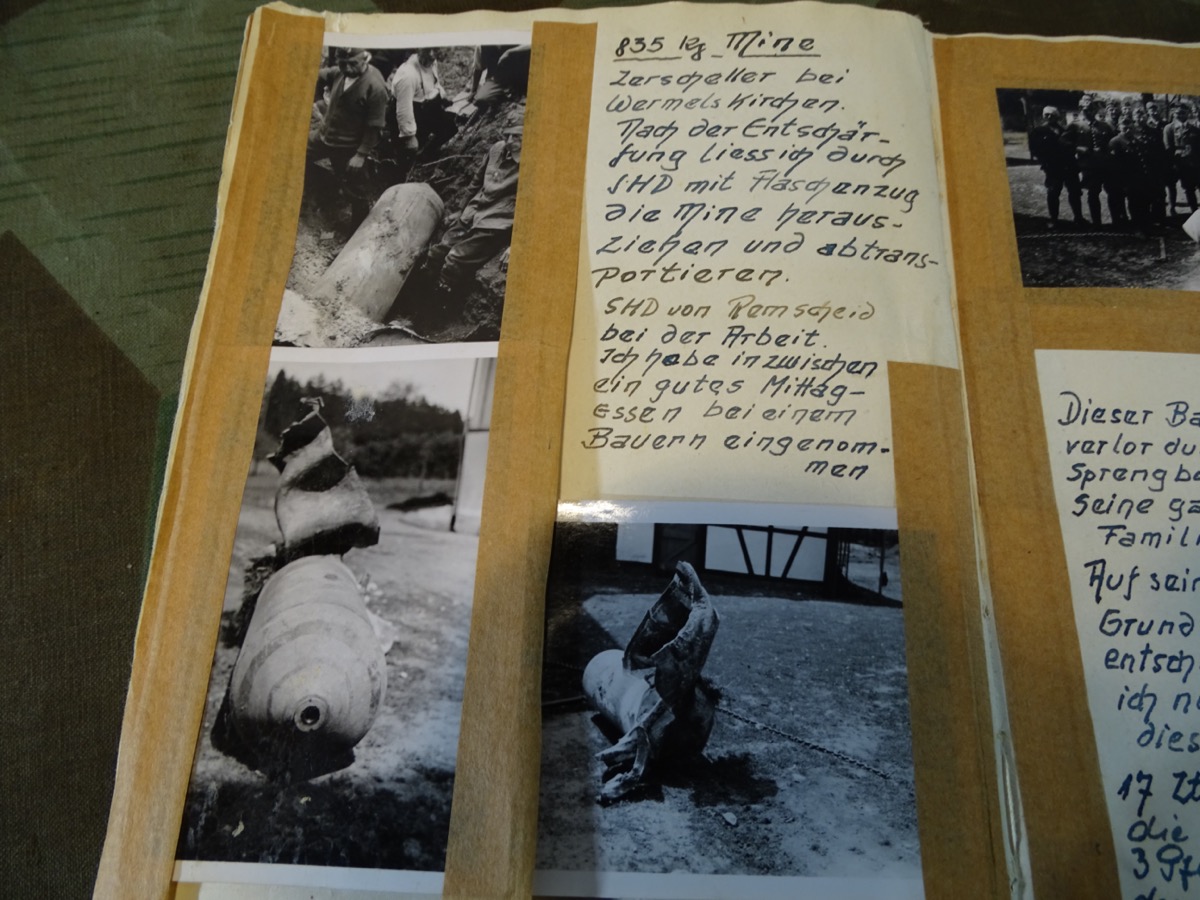 835 kg Mine
Zerscheller bei
Wermelskirchen.
Nach der Entschär-
fung liess ich durch
SHD mit Flaschenzug
die Mine heraus-
ziehen und abtrans-
portieren.
SHD von Remscheid
bei der Arbeit.
Ich habe inzwischen
ein gutes Mittag-
Essen bei einem
Bauern eingenom-
men
Dieser Ba
verlor du
Sprengbo
seine ga
Famili
Auf sein
Grund
entsch
ich n
dies
17 Zt
die
3 Pf